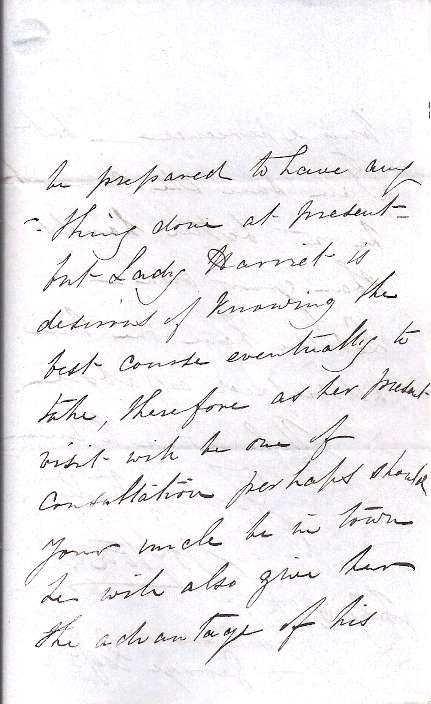 be prepared to have any
- thing done at present -
but Lady Harriet is
desirous of knowing the
best course eventually to
take, therefore as her present
visit will be one of
consultation perhaps should
your uncle be in town
he will also give her
the advantage of his